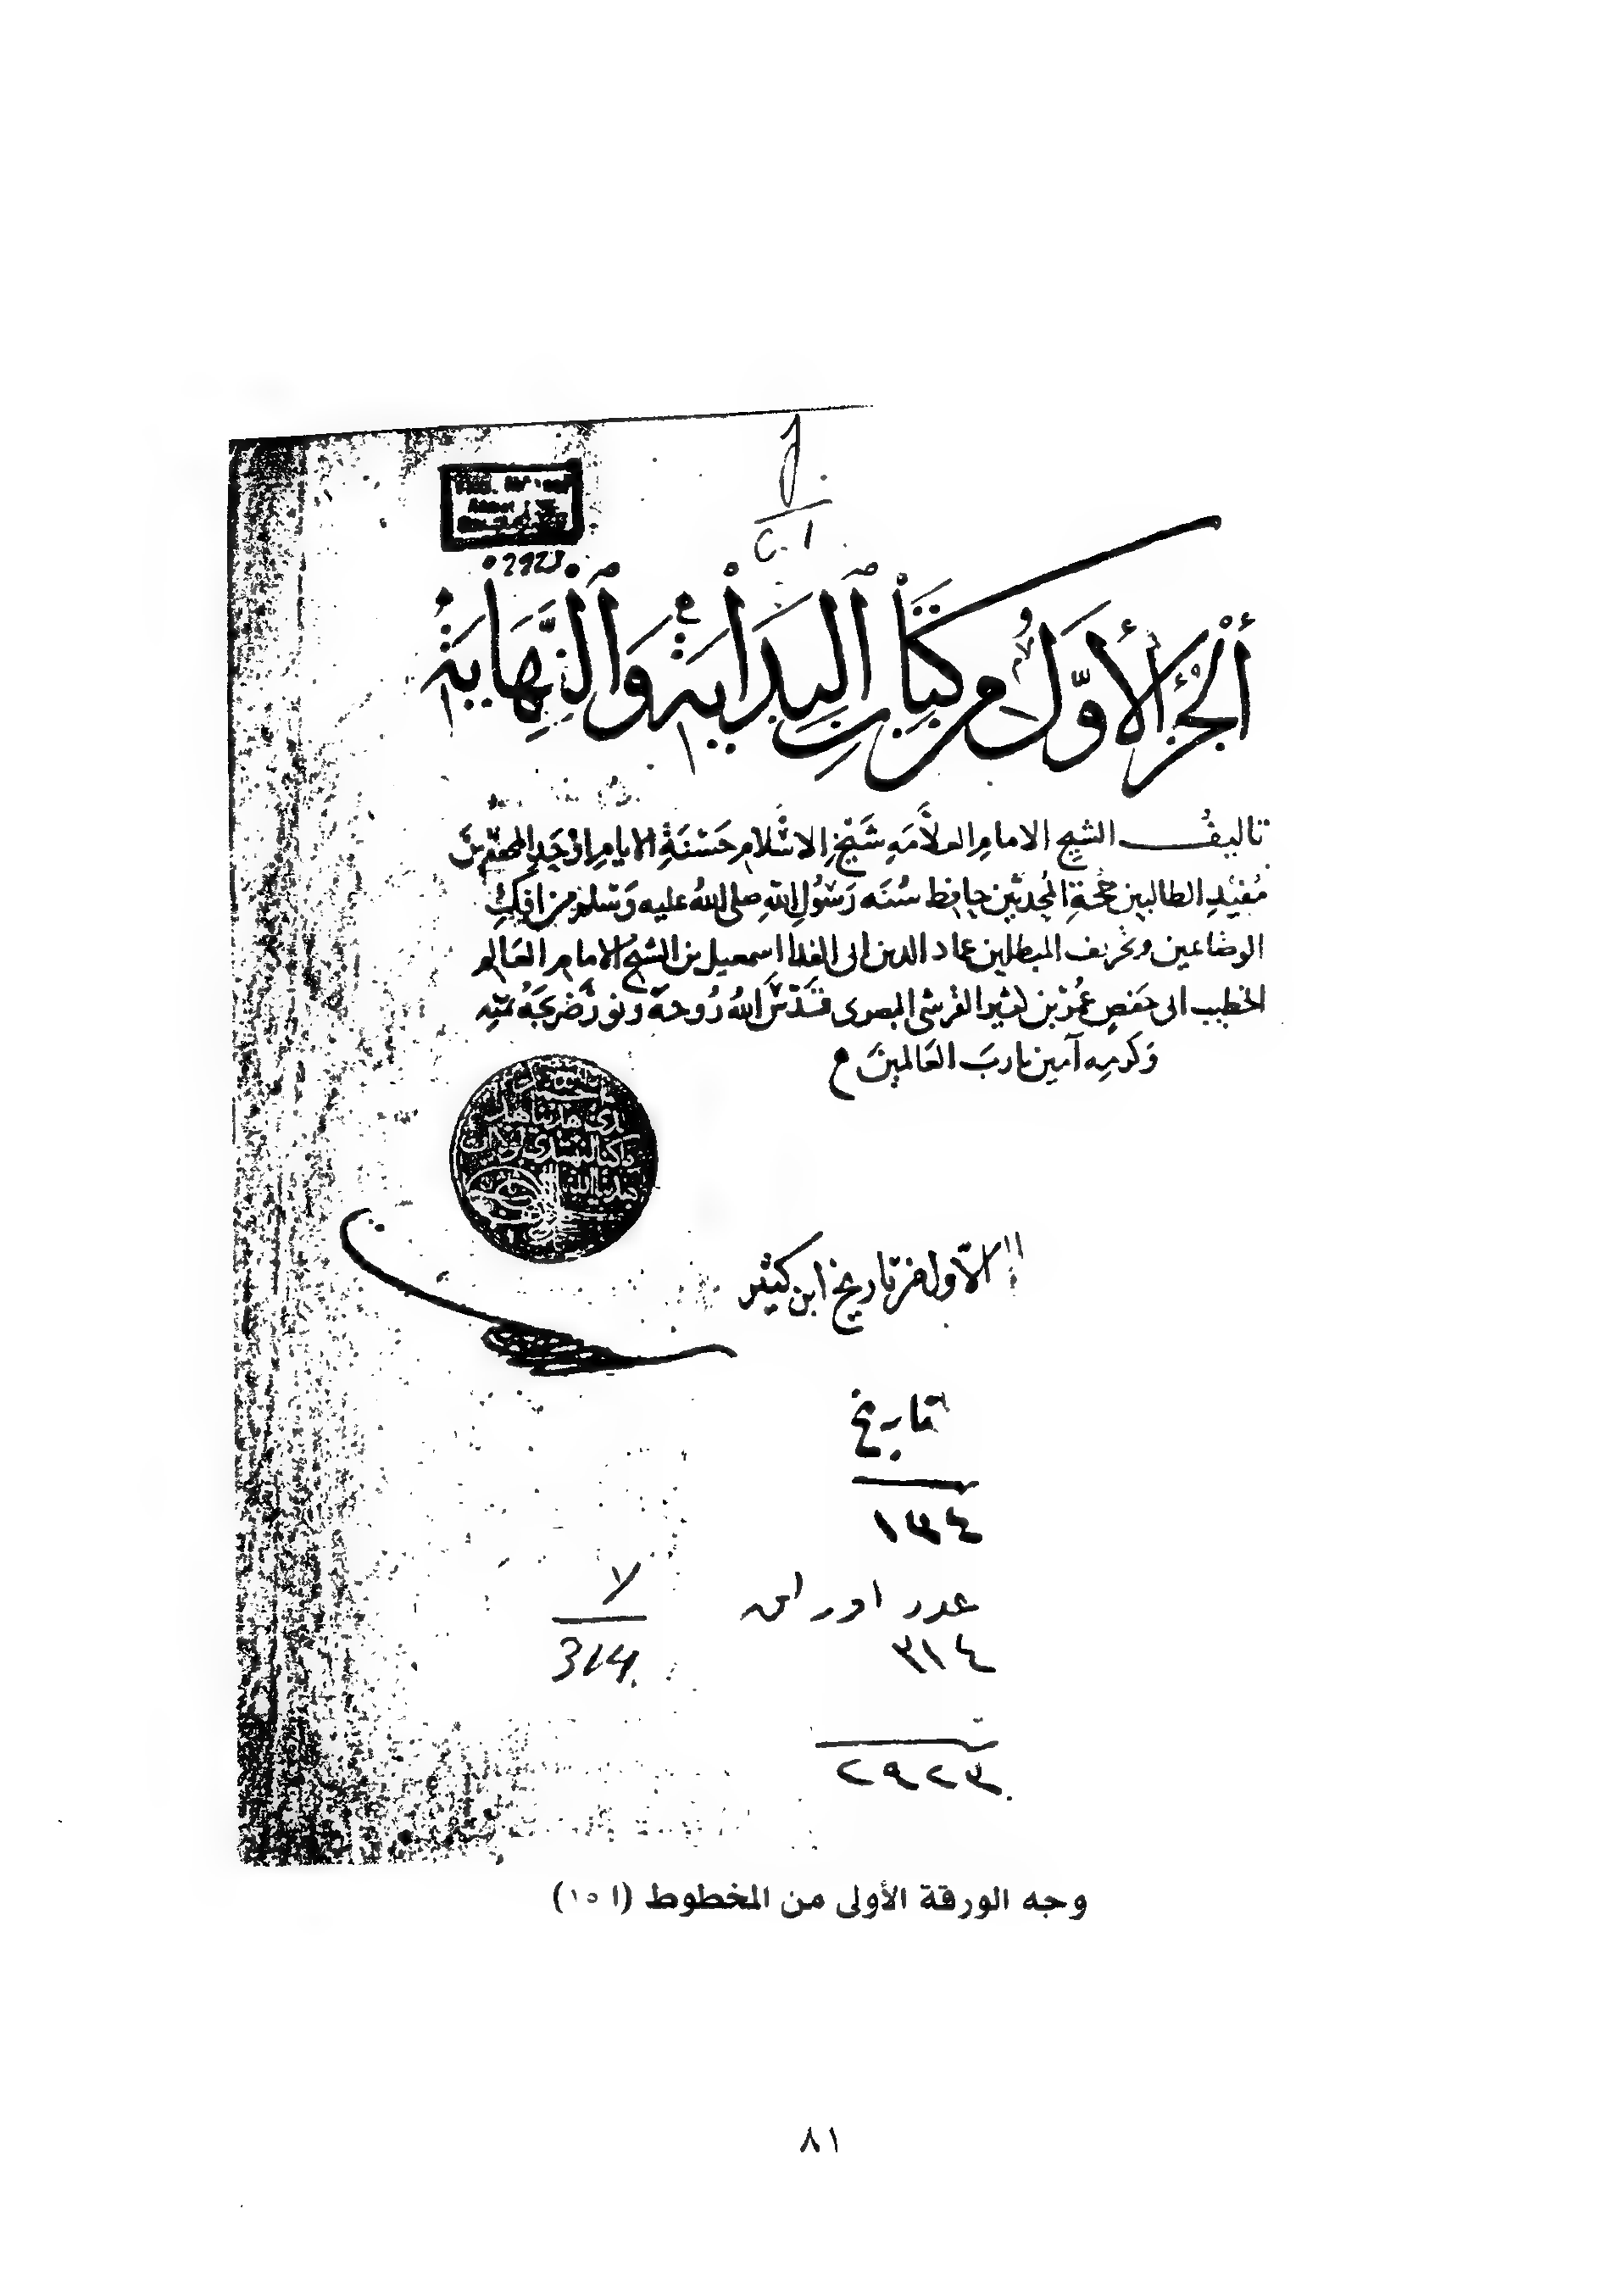 C. 1
02923
الجزء الأول من كتاب البداية والنهاية
تاليف الشيخ الامام العلامه شيخ الاسلام حسنة الايام اوحد المجتهدين
مفيد الطالبين حجة المحدثين حافظ سنه رسول الله صلى الله عليه وسلم من افك
الوضاعين وتحريف المبطلين عماد الدين ابى الفدا اسمعيل بن الشيخ الامام العالم
الخطيب ابى حفص عمر بن كثير القرشى البصروى قدس الله روحه ونور ضريحه بمنه
وكرمه آمين يارب العالمين
الاول من تاريخ ابن كثير
تاريخ
١٣٤
عدد اوراق
٣١٤
314
٢٩٢٣
وجه الورقة الأولى من المخطوط (ا ١٥)
٨١